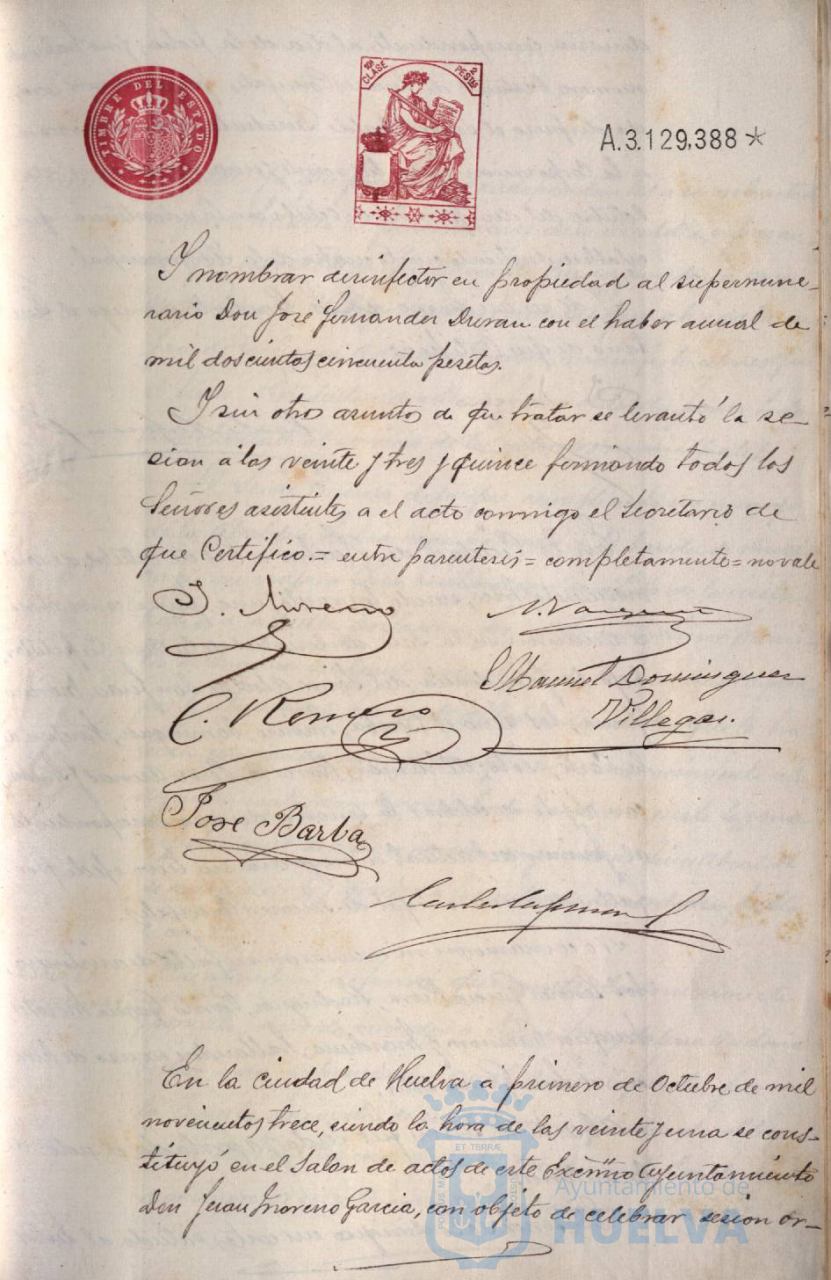 TIMBRE DEL ESTADO
10ª CLASE
2 PESTAS
A.3.129,388 *
Y nombrar desinfector en propiedad al supernume-
rario Don José Fernandez Duran con el haber anual de
mil doscientos cincuenta pesetas.
Y sin otros asuntos de que tratar se levantó la se-
sion á las veinte y tres y quince firmando todos los
Señores asistentes a el acto conmigo el Secretario de
que Certifico.= entre parentesis = completamente = no vale
J. Moreno
C. Romero
Manuel Dominguez
Villegas.
José Barba
En la ciudad de Huelva a primero de Octubre de mil
novecientos trece, siendo la hora de las veinte y una se cons-
tituyó en el Salon de actos de este Excmo Ayuntamiento
Don Juan Moreno Garcia, con objeto de celebrar sesion or-
Ayuntamiento de
HUELVA